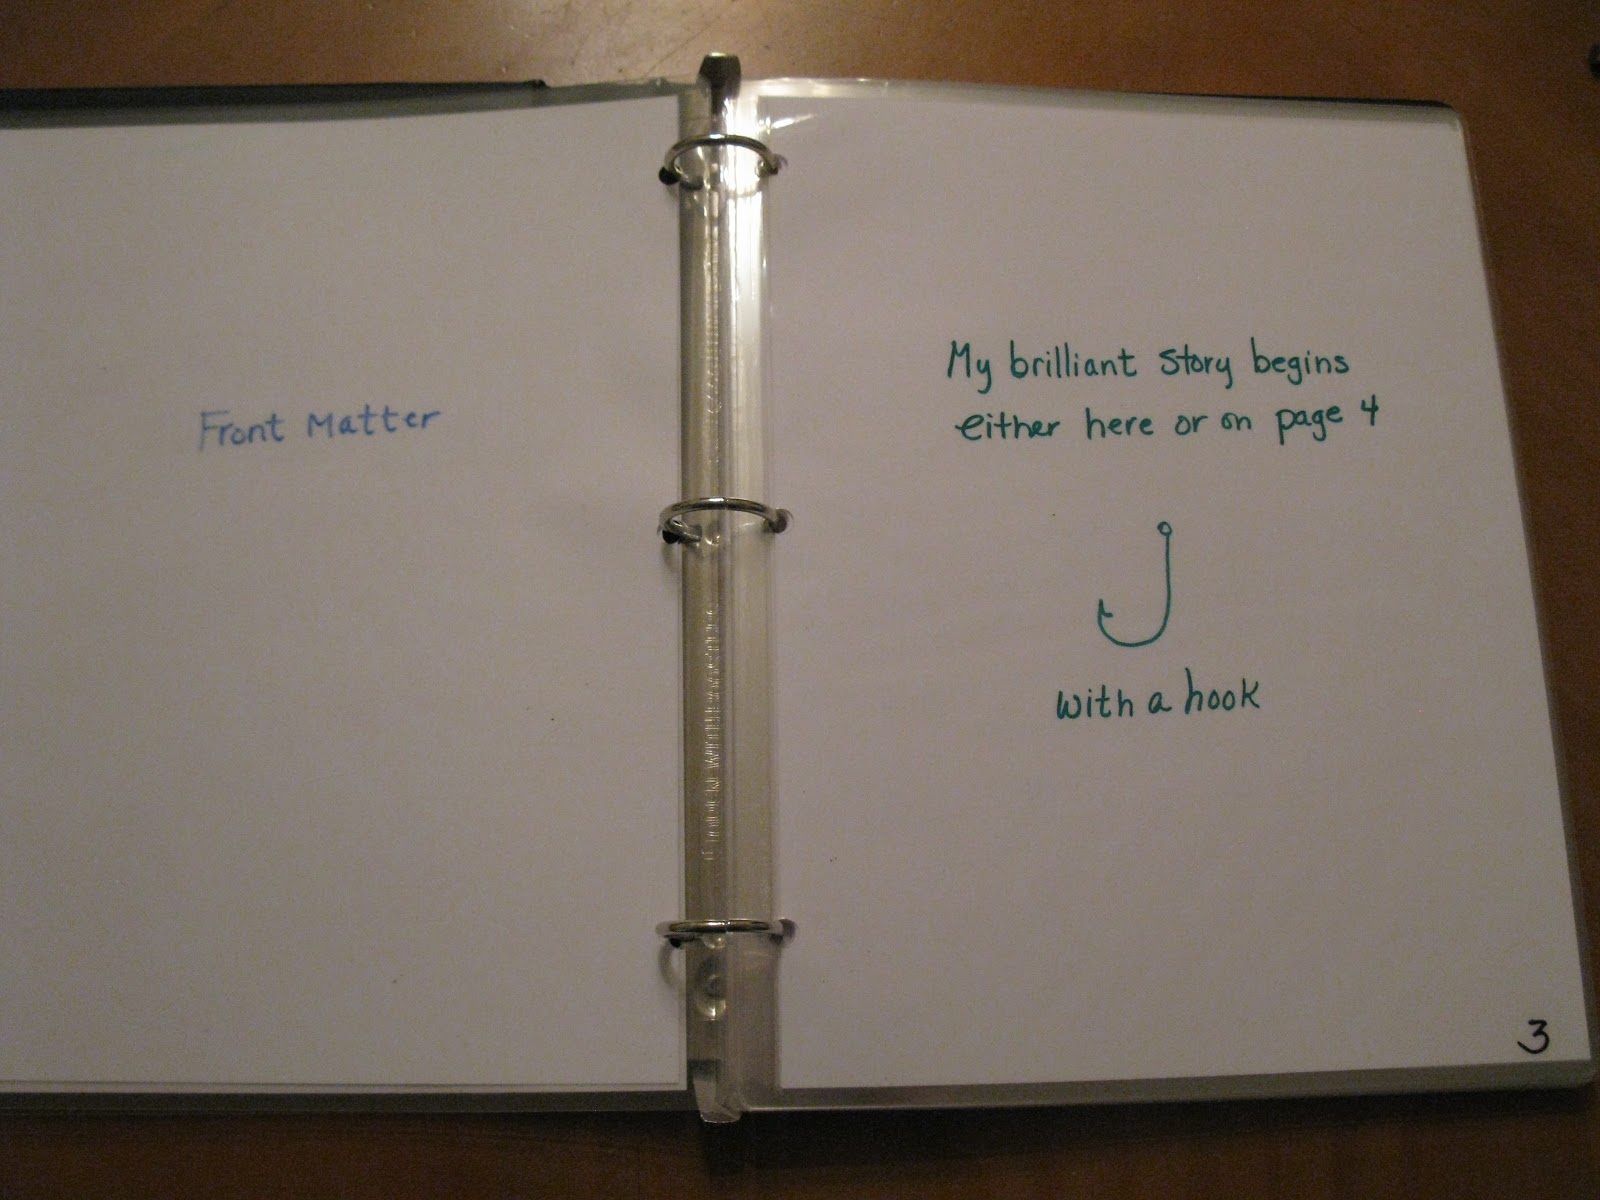 Front Matter
My brilliant story begins
either here or on page 4
with a hook
3